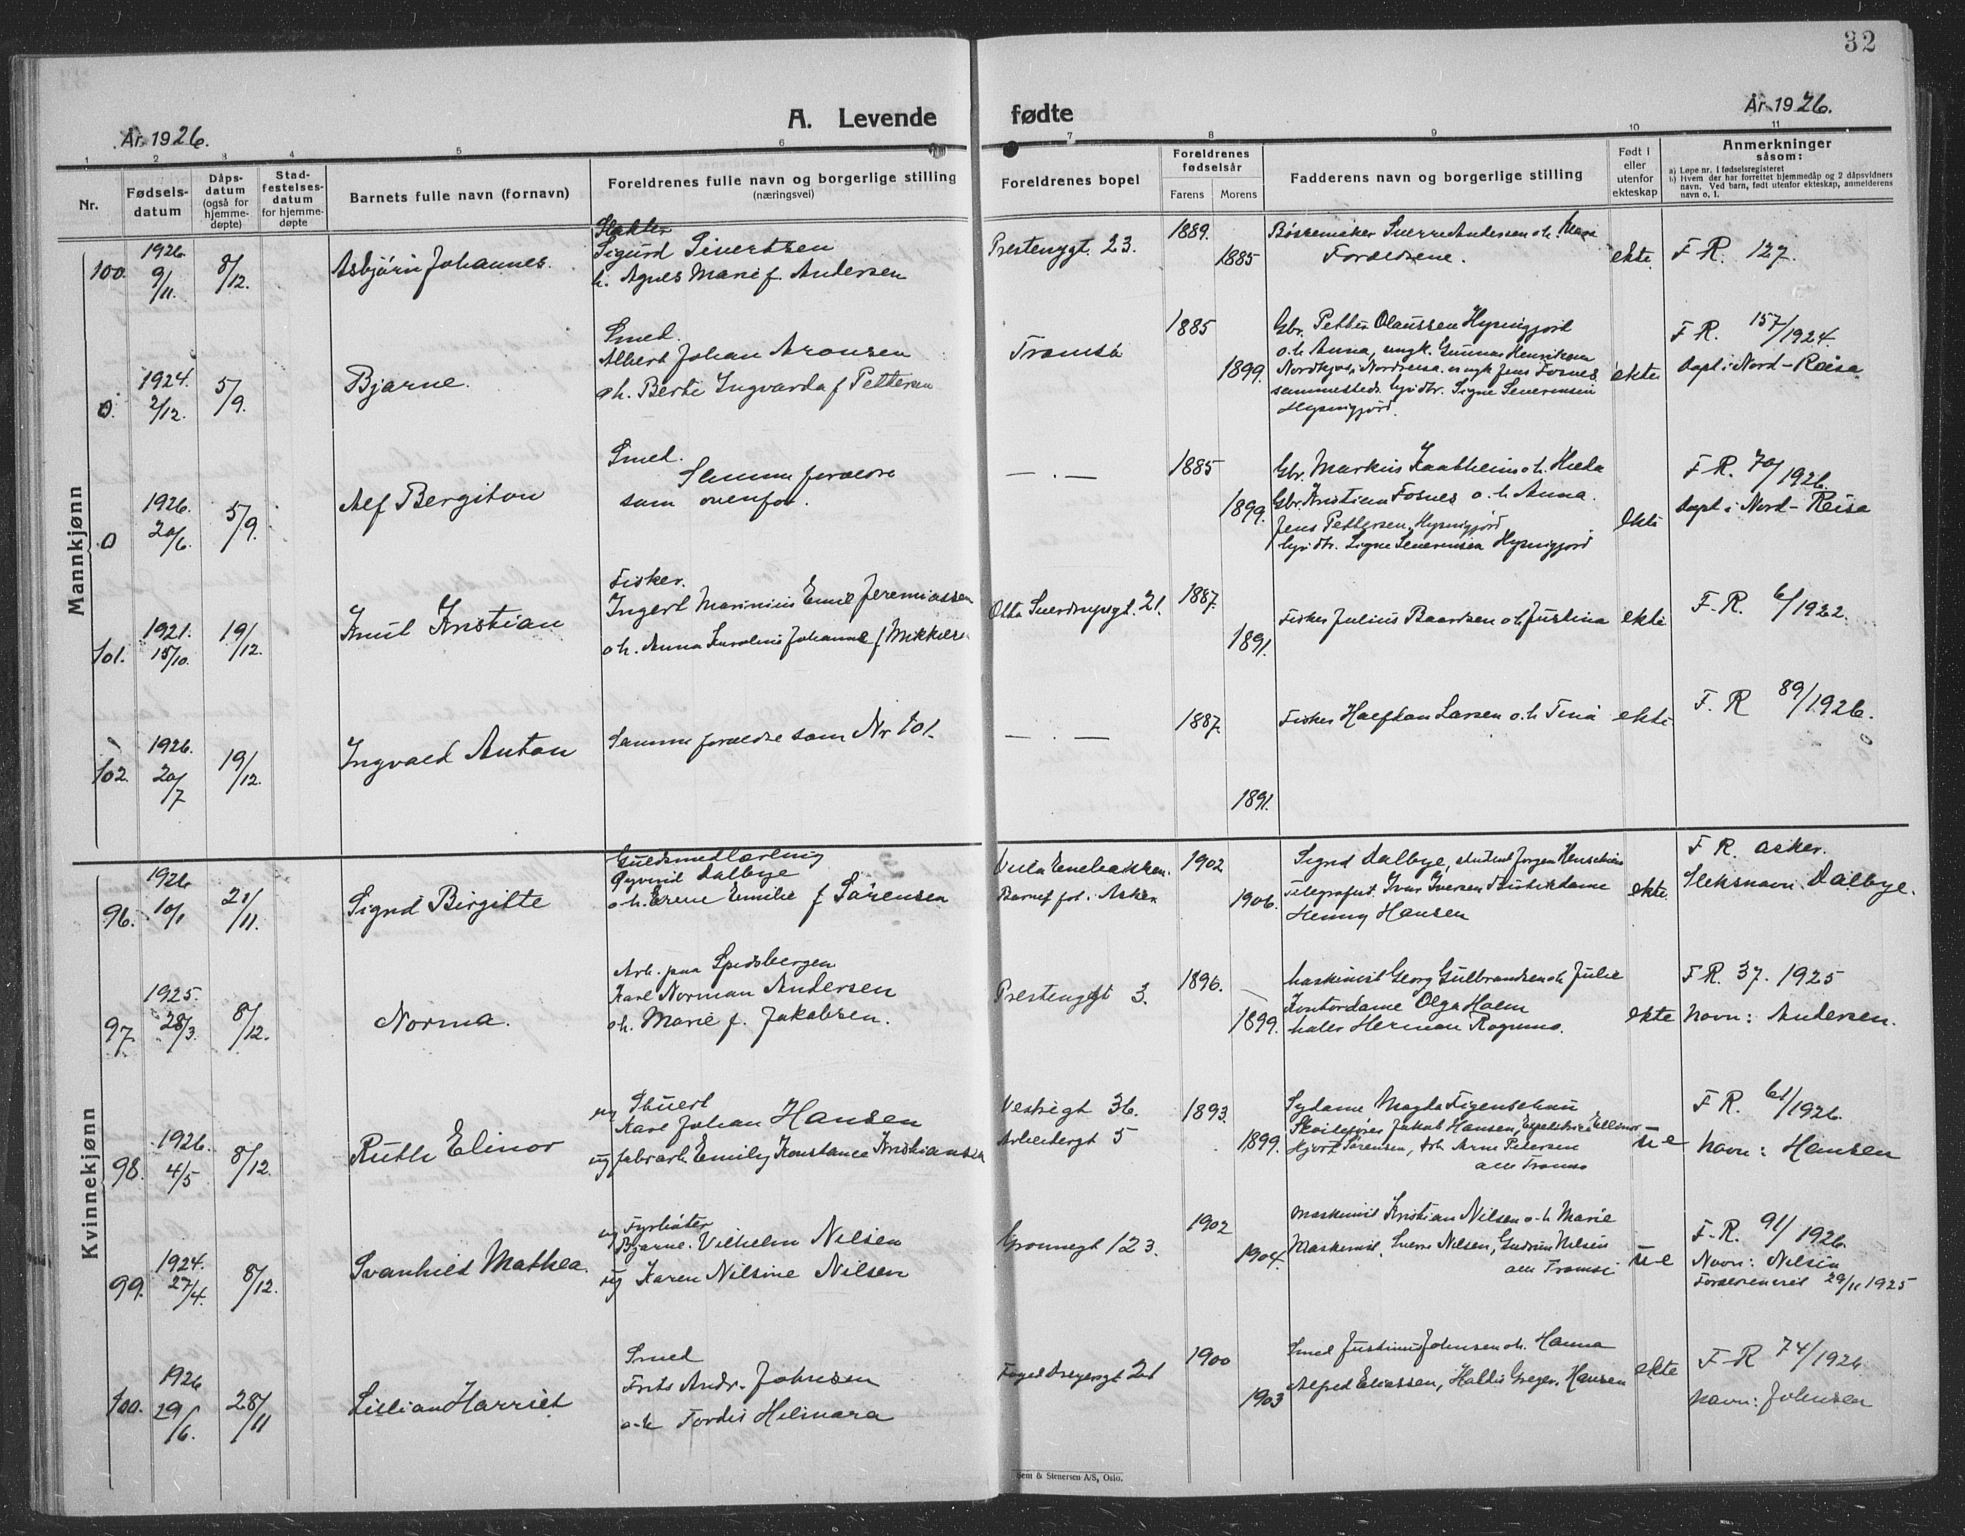 32
År 1926.
A. Levende fødte
År 1926.
1 2 3 4 5 6 7 8 9 10 11
Nr.
Fødsels-
datum
Dåps-
datum
(også for
hjemme-
døpte)
Stad-
festelses-
datum
for hjemme-
døpte
Barnets fulle navn (fornavn)
Foreldrenes fulle navn og borgerlige stilling
(næringsvei)
Foreldrenes bopel
Foreldrenes
fødselsår
Farens Morens
Fadderens navn og borgerlige stilling
Født i
eller
utenfor
ekteskap
Anmerkninger
såsom:
a) Løpe nr. i fødselsregisteret
b) Hvem der har forrettet hjemmedåp og 2 dåpsvidners
navn. Ved barn, født utenfor ekteskap, anmelderens
navn o. l.
Mannkjønn
100. 1926 9/11. 8/12. Asbjørn Johannes.
Slakter
Sigurd Sivertsen
h. Agnes Marie f. Andersen
Prestengt. 23. 1889. 1885
Bøskemaker Sverre Andersen o.h.
Foreldrene.
ekte. F R. 127.
0. 1924 2/12. 5/9. Bjarne.
Smed.
Albert Johan Aronsen
o h. Berte Ingvarda f Pettersen
Tromsø 1885 1899.
Gbr. Petter Olaussen
o.h Anna, ungk. Gunnar Henriksen
Nordreisa. ungk Jens Fosnes
sammesteds. Signe Severinsen
ekte F R. 157/1924
døpt i Nord-Reisa
0 1926. 20/6. 5/9. Alf Bergiton
Smed.
Samme foreldre
som ovenfor.
— . — 1885 1899.
Gbr. Markus o. h.
Gbr. Kristian Fosnes o. h Anna.
Jens Pettersen,
Signe Severinsen
ekte F. R. 70/1926.
døpt i Nord-Reisa
101. 1921. 15/10. 19/12. Knut Kristian
Fisker.
Ingert Marinius Emil Jeremiassen
o h. Anna Karoline Johanne f Mikkelse
Otto Sverdrupsgt. 21. 1887. 1891.
Fisker Julius Baardsen o. h Justina
ekte F. R. 6/1922.
102. 1926. 20/7 19/12. Ingvald Anton
Samme foreldre som Nr 101.
— . — 1887. 1891.
Fisker Halfdan Larsen o. h Tina
ekte F. R 89/1926.
Kvinnekjønn
96. 1926 10/1 21/11. Sigrid Birgitte
Guldsmedlærling
Øyvind Dalbye
o. h. Erene Emilie f Sørensen
Villa
Barnet f. i Asker
1902 1906.
Sigrid Dalbye, student Jørgen
Telegrafist Ivar Iversen
Henny Hansen
ekte. F R. Asker.
Slektsnavn. Dalbye.
97. 1925. 28/3. 8/12. Norma.
Arb. paa Spidsbergen
Karl Norman Andersen
o h. Marie f. Jakobsen.
Prestengt 3. 1896. 1899.
Maskinist Georg Gulbrandsen o h Julie
Kontordame Olga Holm
Maler Herman
ekte F R. 37. 1925
Navn: Andersen.
98. 1926. 4/5 8/12. Ruth Elinor
ug Stuert
Karl Johan Hansen
ug fabrarb Emily Konstance Kristiansen
Vestregt 36.
Arbeidergt 5
1893. 1899.
Sydame Magda Figenschau
Jakob Hansen,
Hjort Sørensen, Arb Arne Petersen
alle Tromsø
u-e F R. 61/1926.
Navn: Hansen
99. 1924. 27/4. 8/12. Svanhild Mathea.
ug Fyrbøter
Bjarne Vilhelm Nilsen
ug Karen Nilsine Nilsen
Grønnegt 123. 1902 1904.
Maskinist Kristian Nilsen o h Marie
Maskinist. Sverre Nilsen, Gudrun Nilsen
alle Tromsø
u-e F. R. 91/1926.
Navn: Nilsen
29/11 1925
100. 1926 29/6. 28/11 Lillian Harriet
Smed
Frits Andr. Johnsen
o h Tordis Hilmara
1900 1903
Smed Justinus Johnsen o h. Hanna
Alfred Eliassen, Haldis Hansen
ekte F R 74/1926
Navn: Johnsen
Sem & Stenersen A/S, Oslo.